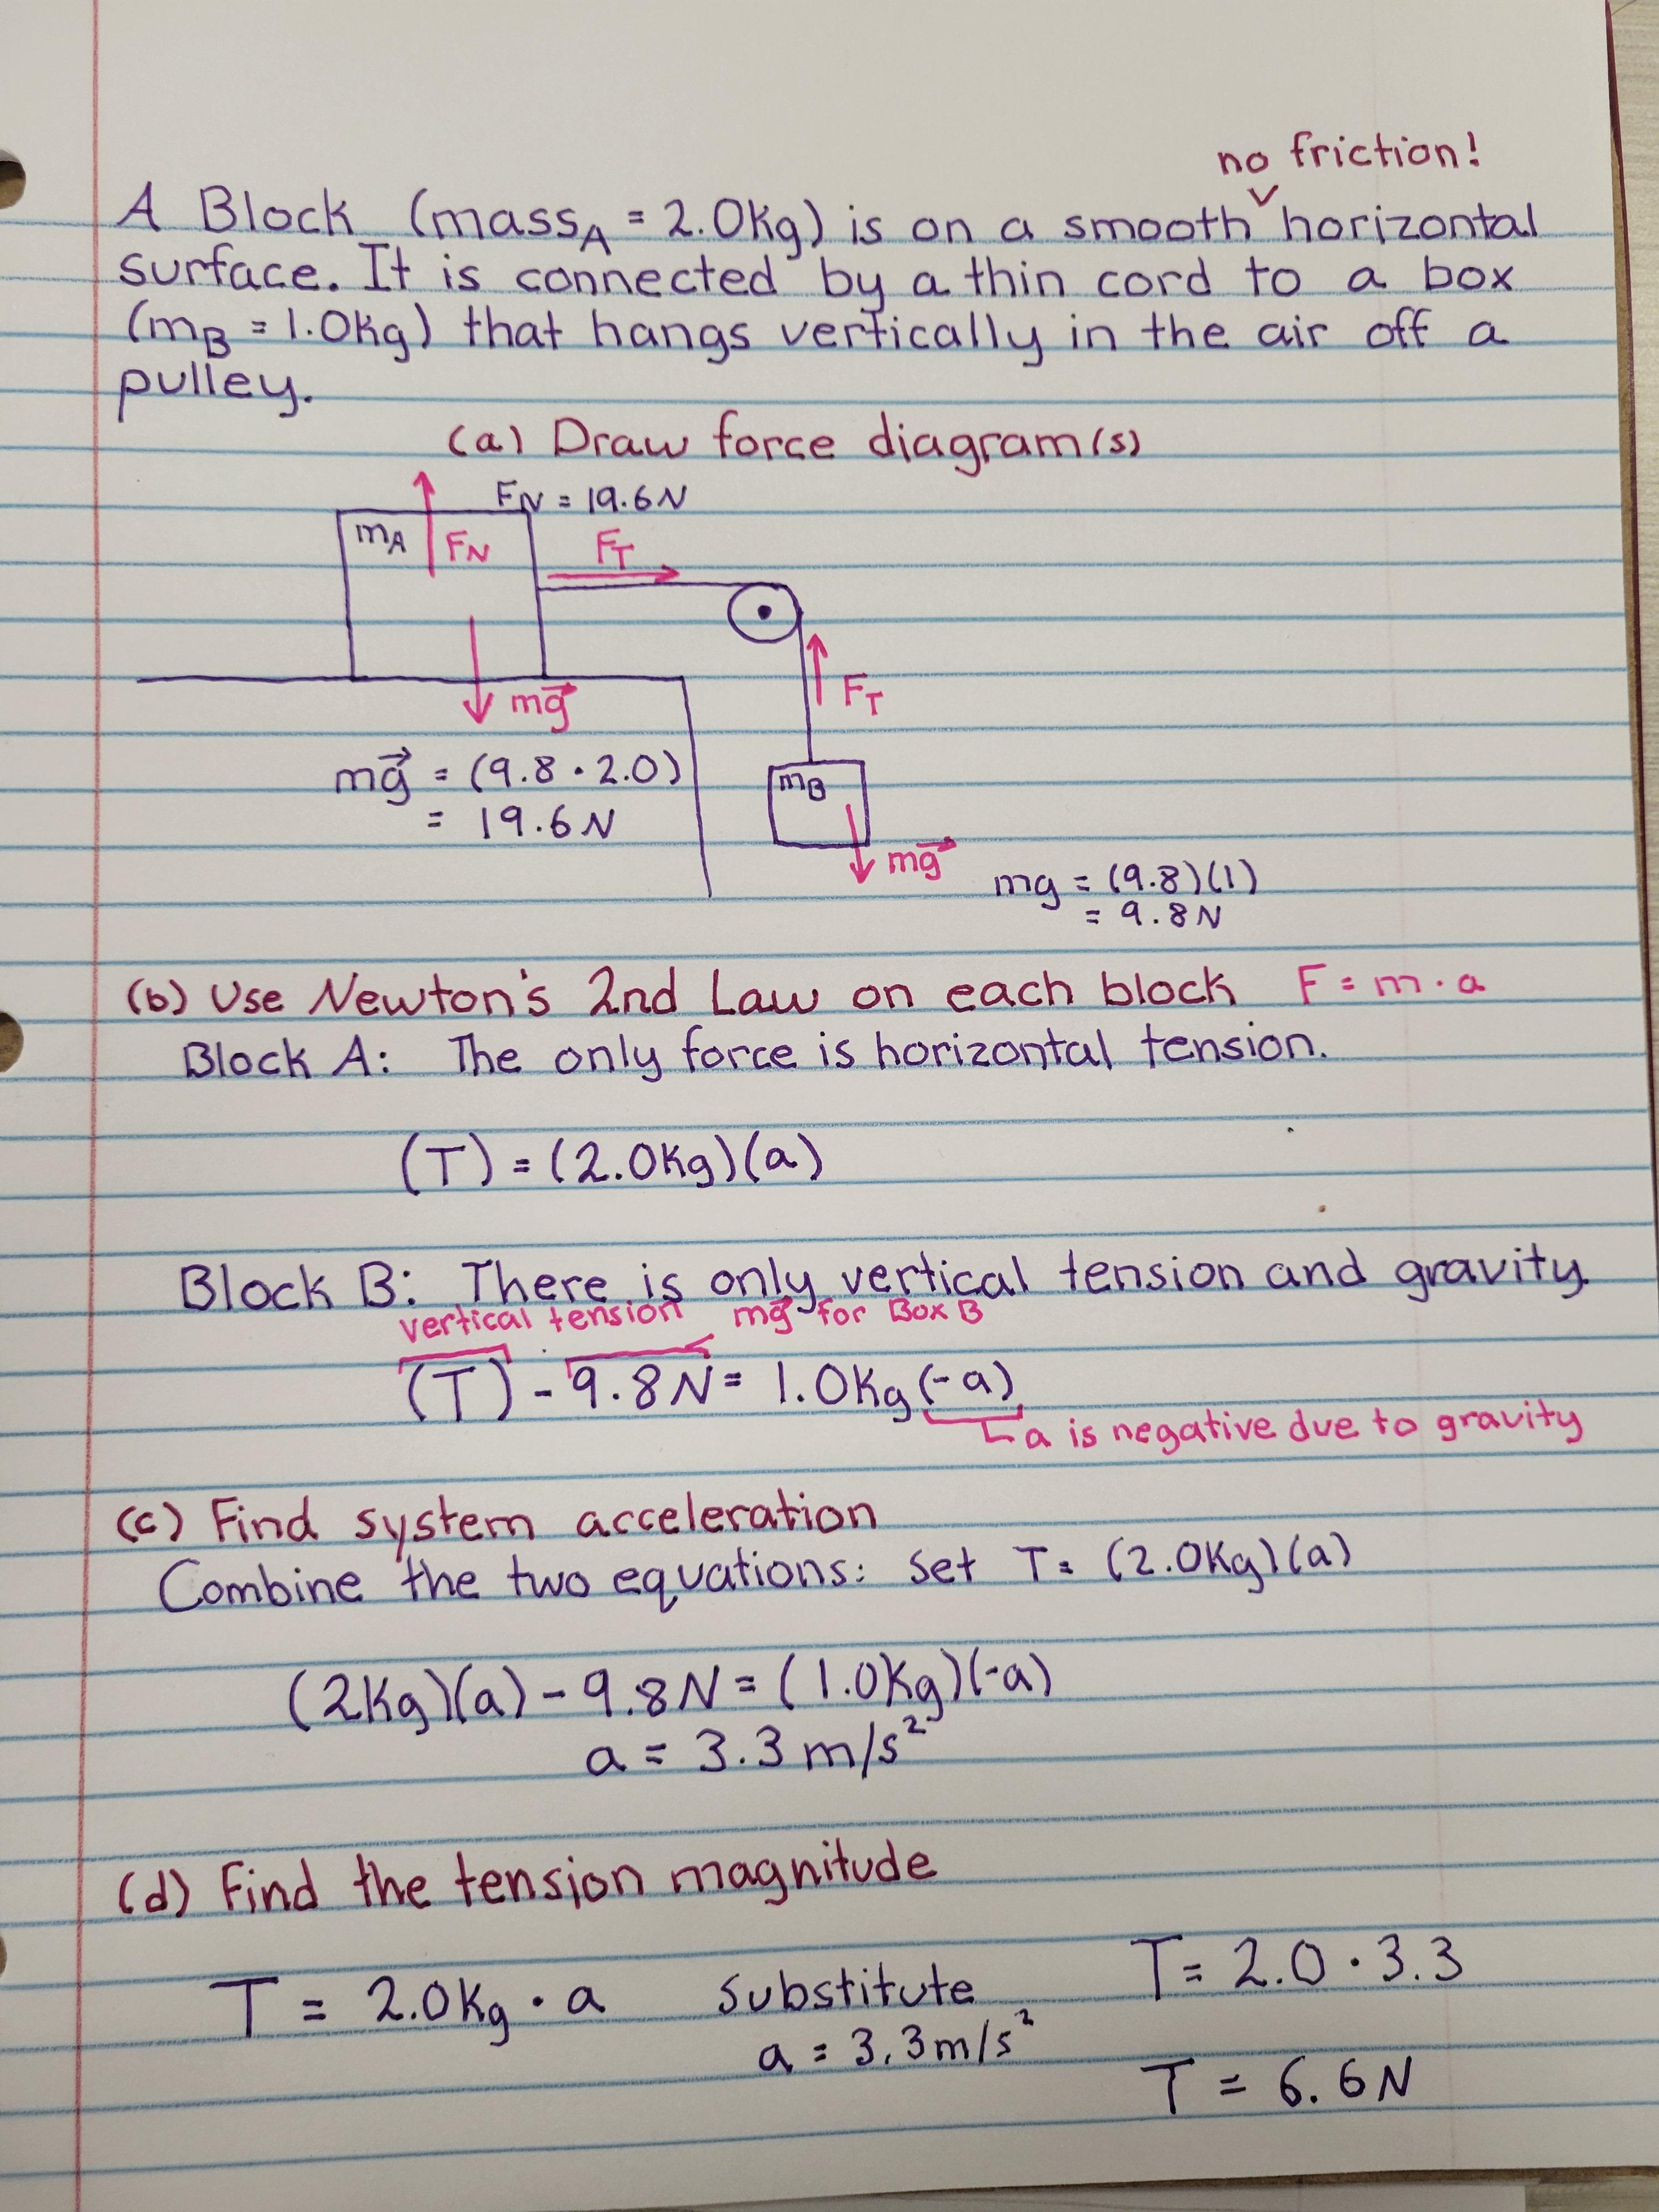 no friction!
A Block (mass_A = 2.0Kg) is on a smooth ˅ horizontal
surface. It is connected by a thin cord to a box
(m_B = 1.0Kg) that hangs vertically in the air off a
pulley.
(a) Draw force diagram(s)
F_N = 19.6N
m_A F_N F_T
F_T
mg⃗
mg⃗ = (9.8 · 2.0)
= 19.6N
m_B
mg⃗
mg = (9.8)(1)
= 9.8N
(b) Use Newton's 2nd Law on each block F = m · a
Block A: The only force is horizontal tension.
(T) = (2.0Kg)(a)
Block B: There is only vertical tension and gravity.
vertical tension mg⃗ for Box B
(T) - 9.8N = 1.0Kg(-a)
a is negative due to gravity
(c) Find system acceleration
Combine the two equations: Set T = (2.0Kg)(a)
(2Kg)(a) - 9.8N = (1.0Kg)(-a)
a = 3.3 m/s²
(d) Find the tension magnitude
T = 2.0Kg · a Substitute T = 2.0 · 3.3
a = 3.3m/s²
T = 6.6N